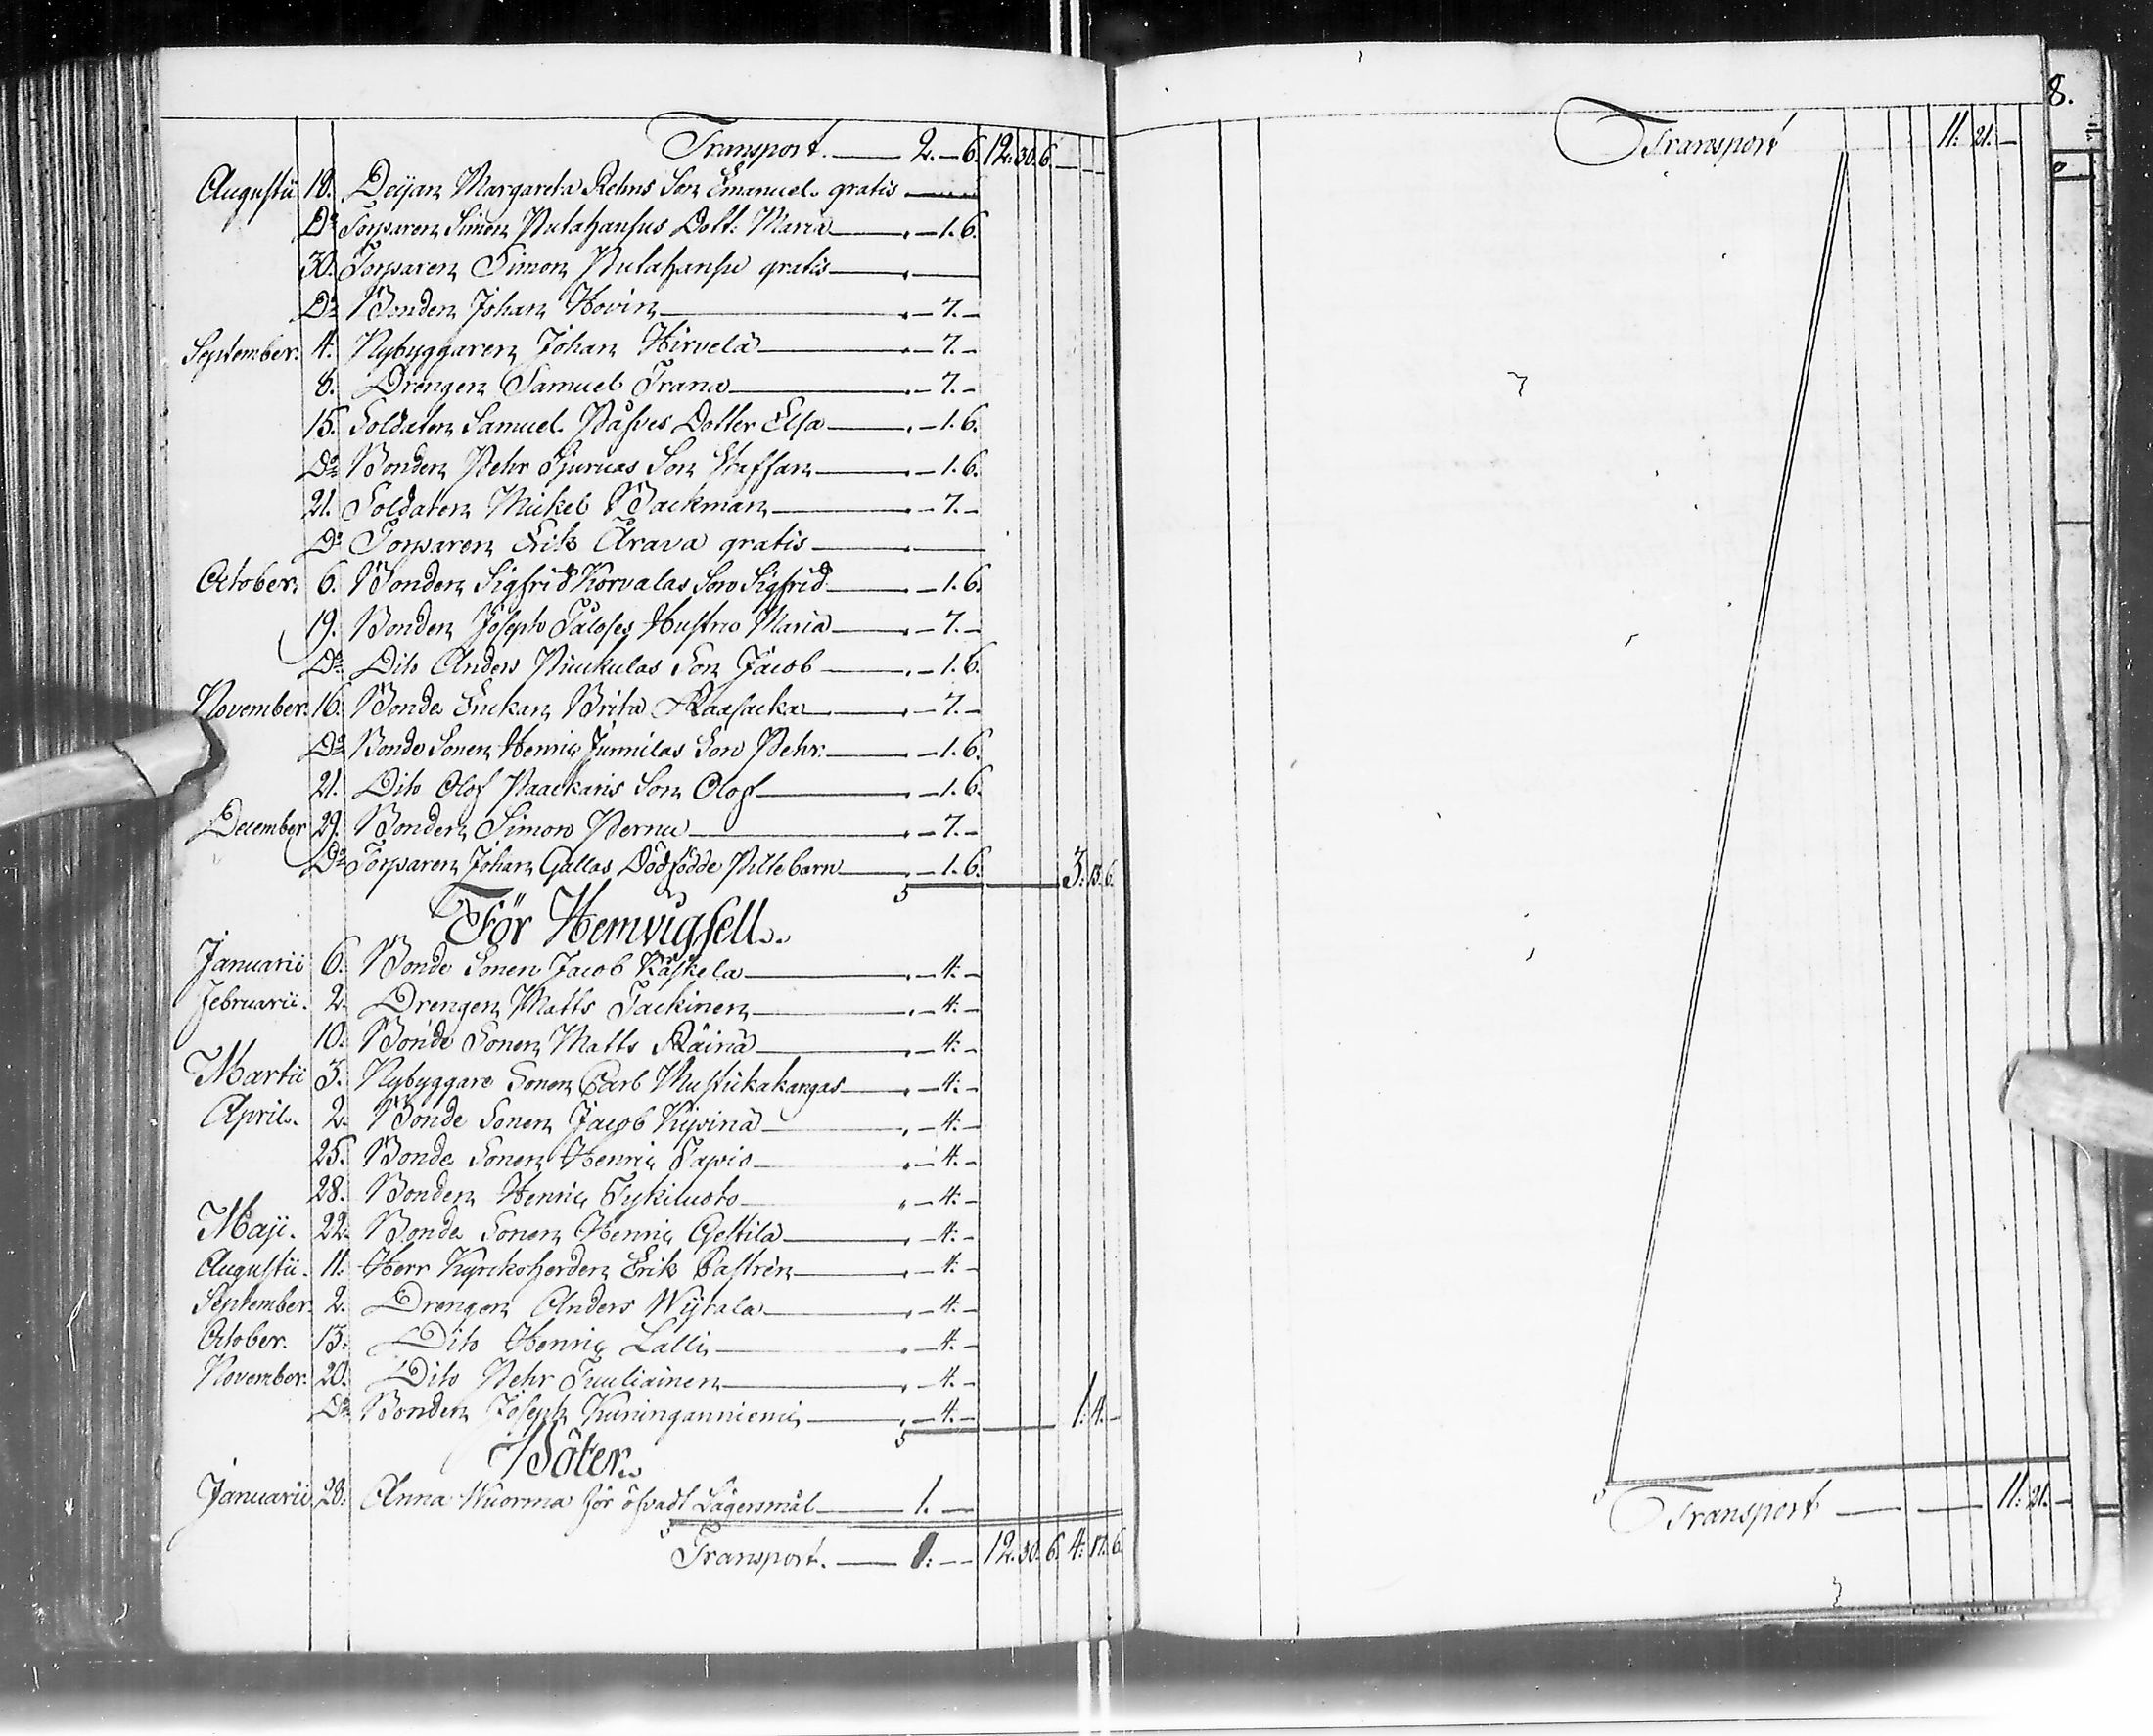 Transport. — 2. — 6. 12. 30. 6. — — —
Augustii 18. Deijan Margareta Rehns Son Emanuel. gratis —
Do Torparen Simon Putahansus Dott: Maria — 1. 6.
30. Torparen Simon Putahansu gratis —
Do Bonden Johan Hovin — 7. –
September. 4. Nybyggaren Johan Hirvelä — 7. –
8. Drengen Samuel Frana — 7. –
15. Soldaten Samuel Påfves Dotter Elsa — 1. 6.
Do Bonden Pehr Sjuruas Son Staffan — 1. 6.
21. Soldaten Mickel Backman — 7. –
Do Torparen Erik Arava gratis —
October. 6. Bonden Sigfrid Korvalas Son Sigfrid — 1. 6.
19. Bonden Joseph Taloses Hustru Maria — 7. –
Do Dito Anders Niukulas Son Jacob — 1. 6.
November. 16. Bonde Enckan Brita Raasacka — 7. –
Do Bonde Sonen Henric Junnilas Son Pehr. — 1. 6.
21. Dito Olof Paackaris Son Olof — 1. 6.
December 29. Bonden Simon Pernu — 7. –
Do Torparen Johan Gallas Dödfödde Piltebarn — 1. 6. 3. 13. 6.
För Hemvigsell.
Januarii 6. Bonde Sonen Jacob Käskela — 4. –
Februarii. 2. Drengen Matts Tackinen — 4. –
10. Bonde Sonen Matts Räinä — 4. –
Martii 3. Nybyggare Sonen Carl Mustickakangas — 4. –
April. 2. Bonde Sonen Jacob Kypinä — 4. –
25. Bonde Sonen Henric Tapio — 4. –
28. Bonden Henric Tykiluoto — 4. –
Maji. 22. Bonde Sonen Henric Gestilä — 4. –
Augustii. 11. Herr Kyrckoherden Erik Castrén — 4. –
September. 2. Drengen Anders Wijtala — 4. –
October. 13. Dito Henric Lalli — 4. –
November. 20. Dito Pehr Tuuliainen — 4. –
Do Bonden Joseph Kuninganniemi — 4. – 1. 4. –
Böter.
Januarii. 28. Anna Wuorma för öfvadt Lägersmål — 1. —
Transport. — 1: — — 12. 30. 6. 4. 17. 6.
8.
Transport 11. 21. –
Transport — — 11. 21. –